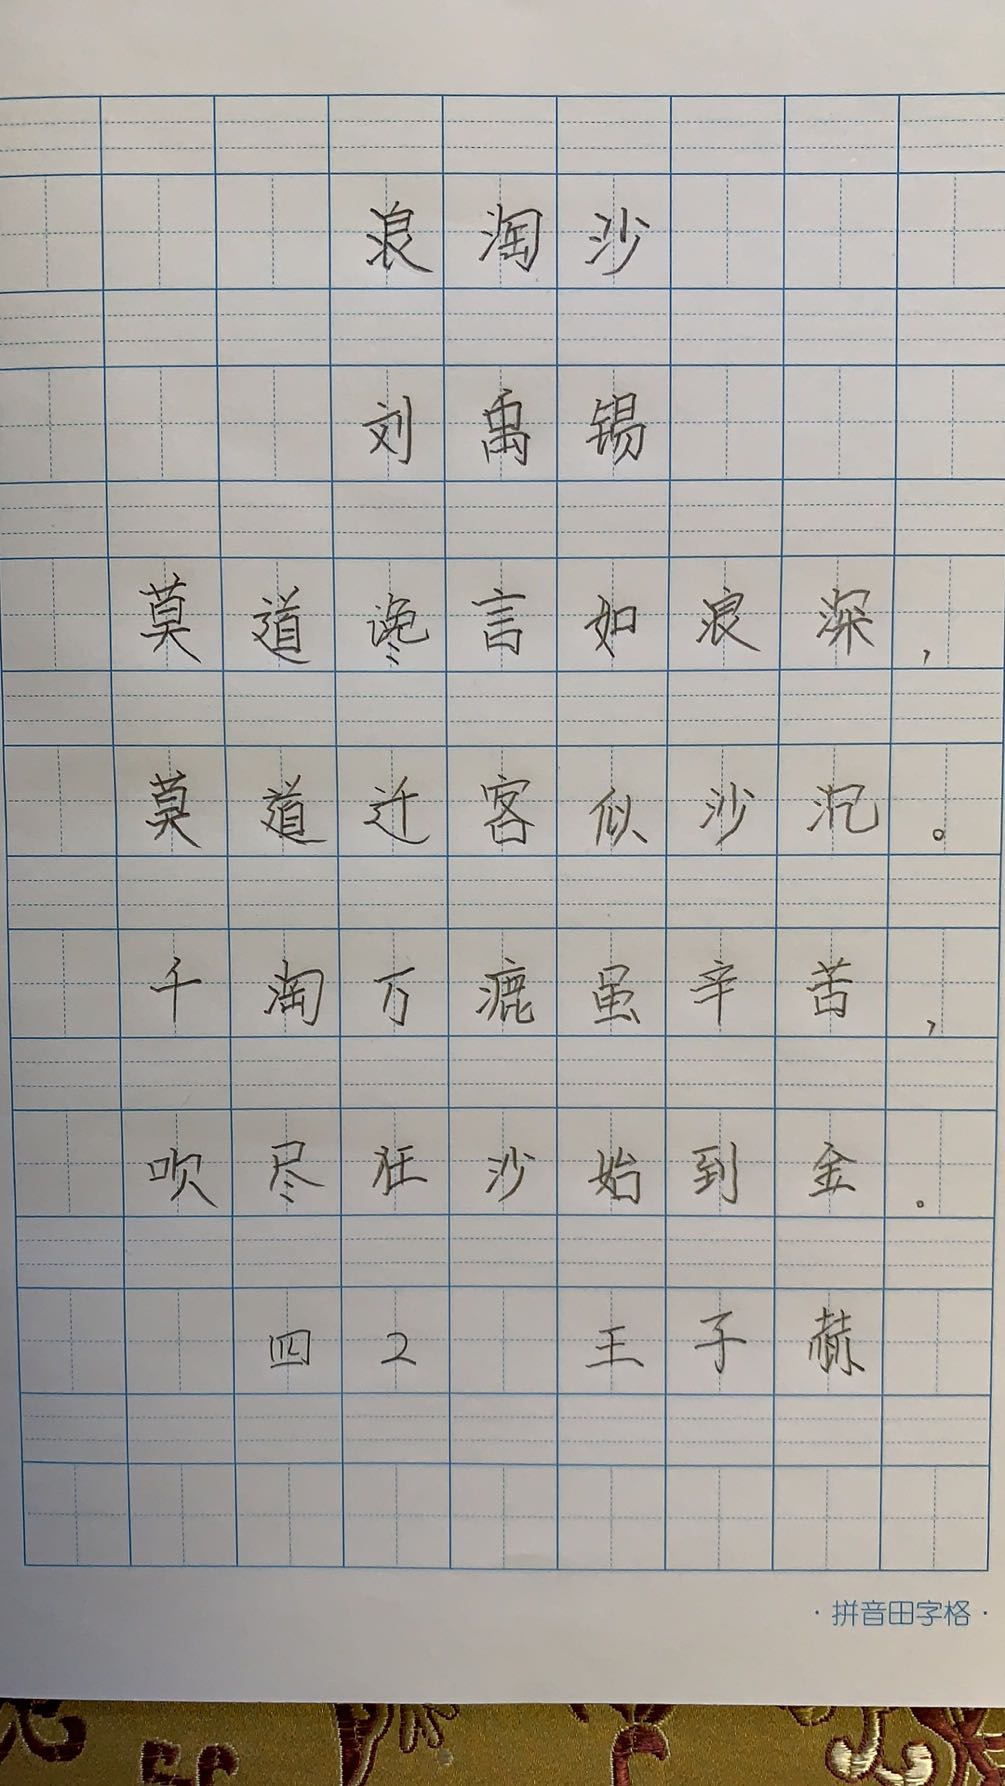 浪淘沙
刘禹锡
莫道谗言如浪深，
莫道迁客似沙沉。
千淘万漉虽辛苦，
吹尽狂沙始到金。
四2 王子赫
·拼音田字格·